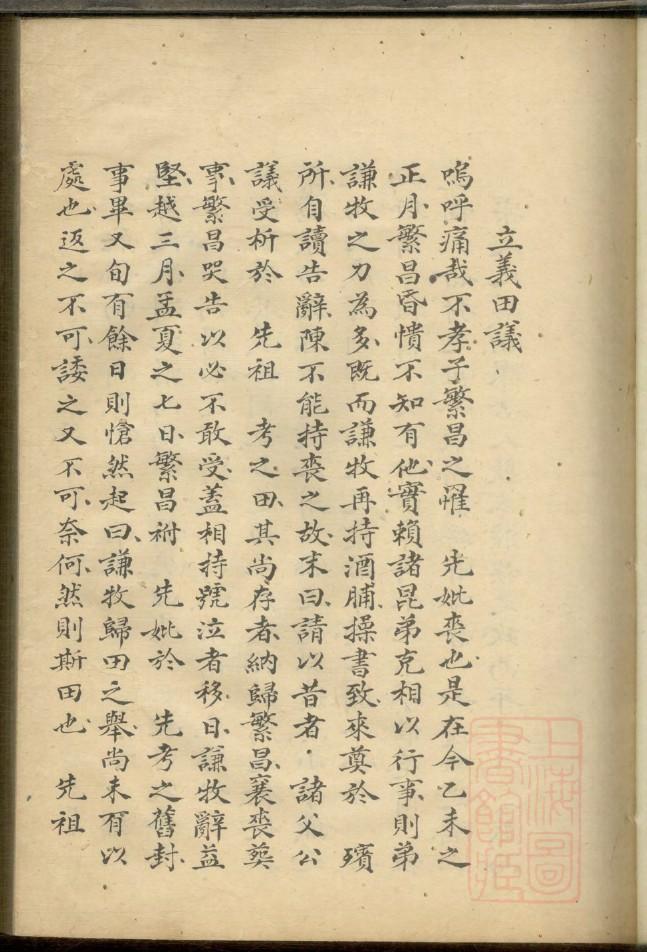 立義田議
嗚呼痛哉不孝子繁昌之罹　先妣喪也是在今乙未之
正月繁昌昏憒不知有他實賴諸昆弟克相以行事則弟
謙牧之力為多既而謙牧再持酒脯操書致來奠於　殯
所自讀告辭陳不能持喪之故末曰請以昔者　諸父公
議受析於　先祖　考之田其尚存者納歸繁昌襄喪葬
事繁昌哭告以必不敢受蓋相持號泣者移日謙牧辭益
堅越三月孟夏之七日繁昌祔　先妣於　先考之舊封
事畢又旬有餘日則愴然起曰謙牧歸田之舉尚未有以
處也返之不可諉之又不可奈何然則斯田也　先祖
上海圖
書館藏